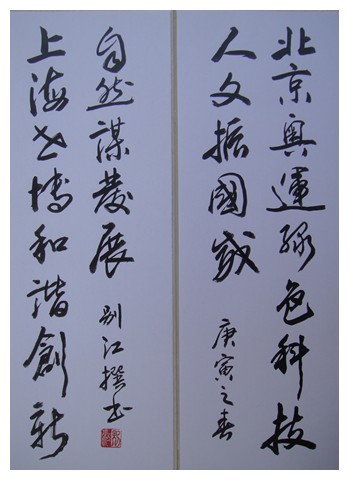 北京奧運綠色科技
人文振國威
庚寅之春
上海世博和諧創新
自然謀發展
別江撰书